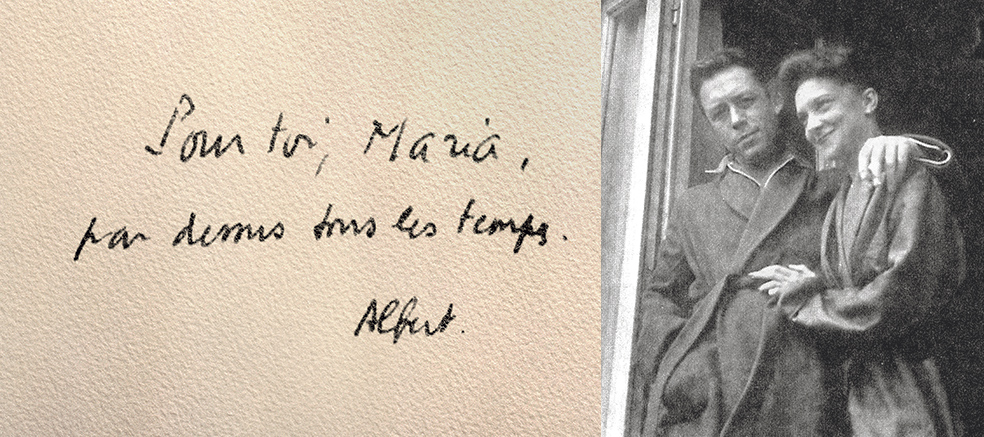 Pour toi, Maria,
par dessus tous les temps.
Albert.